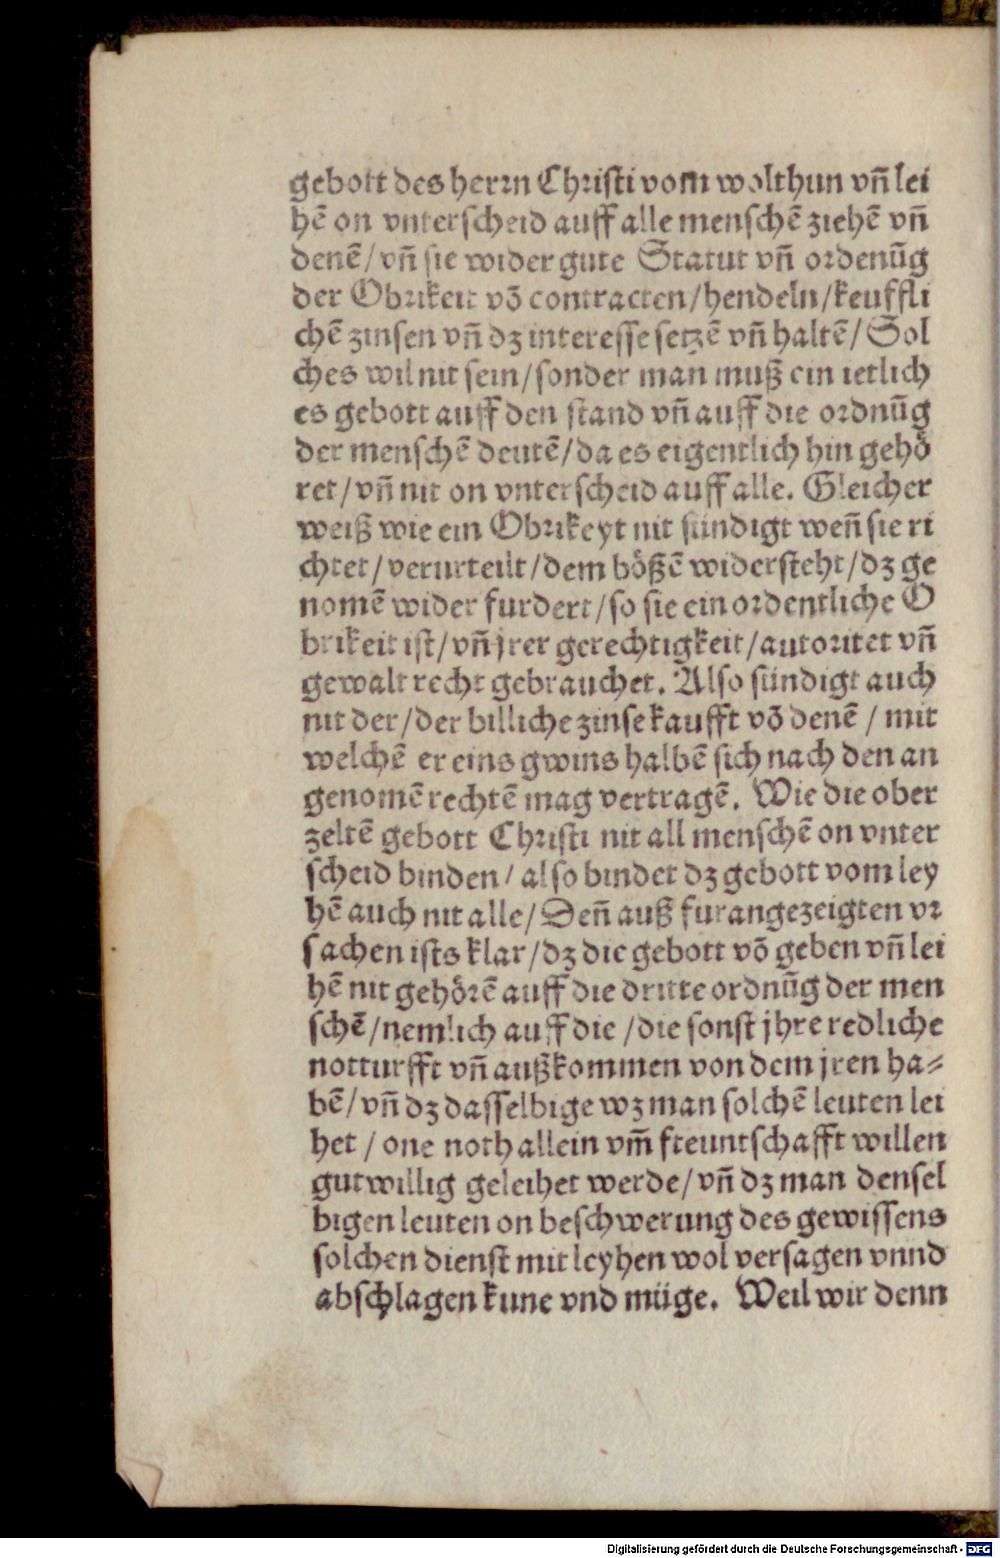 gebott des herrn Christi vom wolthun vñ lei
hē on vnterscheid auff alle menschē ziehē vñ
denē/ vñ sie wider gute Statut vñ ordenūg
der Obrikeit vō contracten/hendeln/keuffli
chē zinsen vñ dz interesse setzē vñ haltē/ Sol
ches wil nit sein/sonder man muß ein ietlich
es gebott auff den stand vñ auff die ordnūg
der menschē deutē/da es eigentlich hin gehö
ret/ vñ nit on vnterscheid auff alle. Gleicher
weiß wie ein Obrikeyt nit sündigt weñ sie ri
chtet/ verurteilt/dem bößē widersteht/dz ge
nomē wider furdert/so sie ein ordentliche O
brikeit ist/ vñ jrer gerechtigkeit/autoritet vñ
gewalt recht gebrauchet. Also sündigt auch
nit der/der billiche zinse kaufft vō denē / mit
welchē er eins gwins halbē sich nach den an
genomē rechtē mag vertragē. Wie die ober
zeltē gebott Christi nit all menschē on vnter
scheid binden/ also bindet dz gebott vom ley
hē auch nit alle/ Deñ auß furangezeigten vr
sachen ists klar/dz die gebott vō geben vñ lei
hē nit gehörē auff die dritte ordnūg der men
schē/nemlich auff die /die sonst jhre redliche
notturfft vñ außkommen von dem jren ha⸗
bē/ vñ dz dasselbige wz man solchē leuten lei
het / one noth allein vm̃ fteuntschafft willen
gutwillig geleihet werde/ vñ dz man densel
bigen leuten on beschwerung des gewissens
solchen dienst mit leyhen wol versagen vnnd
abschlagen kune vnd müge. Weil wir denn
Digitalisierung gefördert durch die Deutsche Forschungsgemeinschaft - DFG